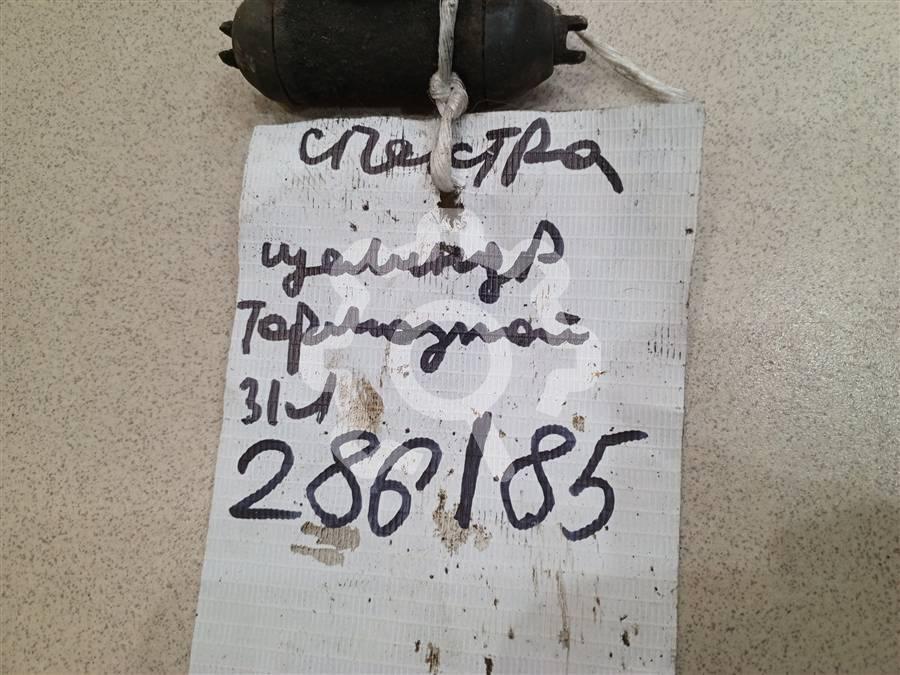 спектра
цилиндр
Тормозной
З/Л
286/85